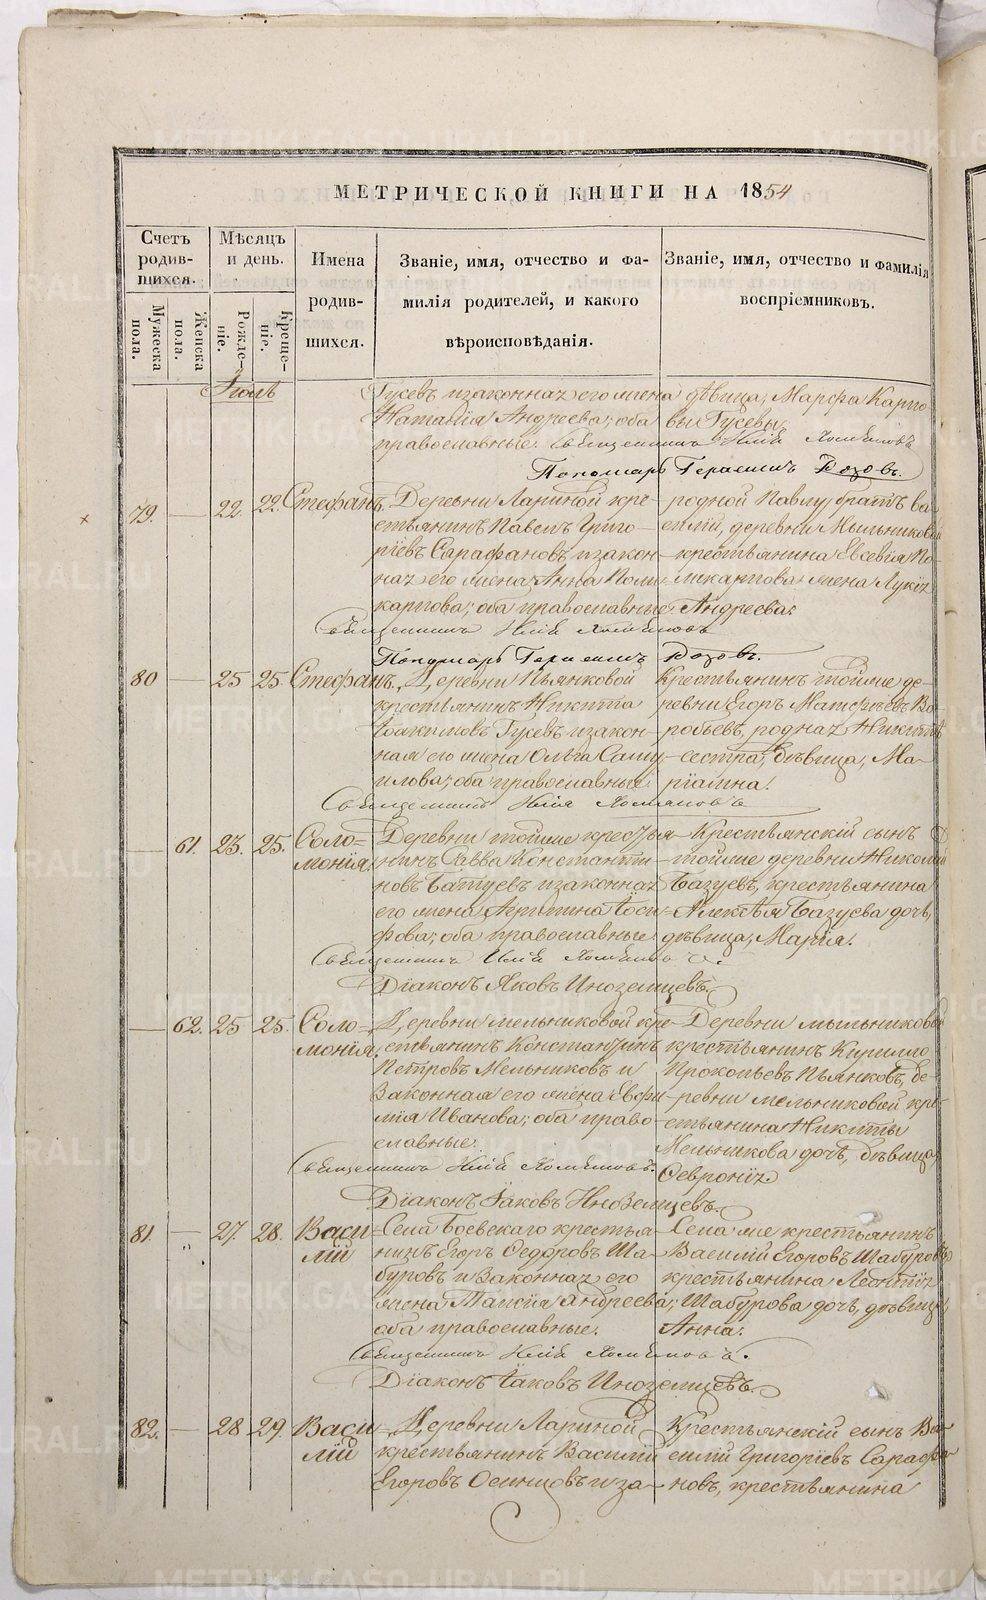 МЕТРИЧЕСКОЙ КНИГИ НА 1854
Счетъ родившихся.
Мужеска пола.
Женска пола.
Мѣсяцъ и день.
Рожденіе.
Крещеніе.
Имена родившихся.
Званіе, имя, отчество и фамилія родителей, и какого вѣроисповѣданія.
Званіе, имя, отчество и фамилія воспріемниковъ.
Іюль
Гусевъ и законная его жена
Наталія Андреева; оба
православные.
дѣвица, Марфа Карпо-
вы Гусевы.
Священникъ Илія Хомяковъ
Пономарь Герасимъ Розовъ.
79. — 22. 22. Стефанъ.
Деревни Лариной кре-
стьянинъ Павелъ Григо-
ріевъ Сарафановъ и закон-
ная его жена Анна Поли-
карпова; оба православные
родной Павлу братъ Ва-
силій, деревни Мыльниковой
крестьянина Евсевія По-
ликарпова жена Лукія
Андреева.
Священникъ Илія Хомяковъ
Пономарь Герасимъ Розовъ.
80 — 25 25. Стефанъ.
Деревни Пьянковой
крестьянинъ Никита
Іоакимовъ Гусевъ и закон-
ная его жена Ольга Саму-
илова; оба православные
Крестьянинъ тойже де-
ревни Егоръ Матфіевъ Во-
робьевъ, родная Никитѣ
сестра, дѣвица, Ма-
ріамна.
Священникъ Илія Хомяковъ
— 61. 23. 25. Соло-
монія.
Деревни тойже крестья-
нинъ Савва Константи-
новъ Батуевъ и законная
его жена Іоси-
фова; оба православные
Крестьянскій сынъ
тойже деревни Николай
Базуевъ, крестьянина
Алексѣя Базуева дочь,
дѣвица, Марія.
Священникъ Илія Хомяковъ.
Діаконъ Яковъ Иноземцевъ.
— 62. 25 25. Соло-
монія.
Деревни Мельниковой кре-
стьянинъ Константинъ
Петровъ Мельниковъ и
законная его жена Евфи-
мія Иванова; оба право-
славные.
Деревни Мыльниковой
крестьянинъ Кирилло
Прокопьевъ Пьянковъ, де-
ревни Мельниковой кре-
стьянина Никиты
Мельникова дочь, дѣвица,
Февронія.
Священникъ Илія Хомяковъ.
Діаконъ Іаковъ Иноземцевъ.
81. — 27. 28. Васи-
лій
Села Боевскаго крестья-
нинъ Егоръ Ѳедоровъ Ша-
буровъ и законная его
жена Таисія Андреева;
оба православные.
Села же крестьянинъ
Василій Егоровъ Шабуровъ,
крестьянина Леонтія
Шабурова дочь, дѣвица,
Анна.
Священникъ Илія Хомяковъ.
Діаконъ Іаковъ Иноземцевъ.
82. — 28 29. Васи-
лій
Деревни Лариной
крестьянинъ Василій
Егоровъ Осинцовъ и за-
Крестьянскій сынъ Ва-
силій Григоріевъ Сарафа-
новъ, крестьянина